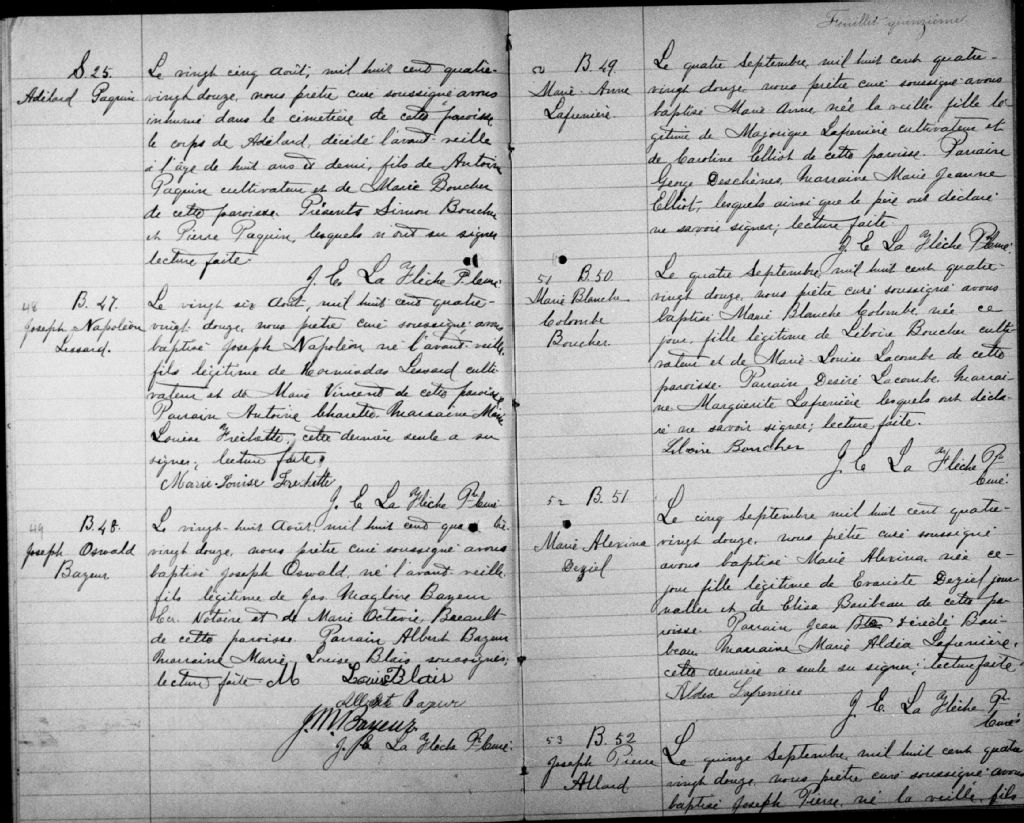 S. 25.
Adélard Paquin
Le vingt cinq Août, mil huit cent quatre-
vingt douze, nous prêtre curé soussigné avons
inhumé dans le cimetière de cette paroisse
le corps de Adélard, décédé l'avant veille
à l'âge de huit ans et demi, fils de Antoine
Paquin cultivateur et de Marie Boucher
de cette paroisse. Présents Simon Boucher
et Pierre Paquin, lesquels n'ont su signer
lecture faite.
J. E. La Flèche Ptre Curé
48 B. 47.
Joseph Napoléon
Lessard.
Le vingt six Août, mil huit cent quatre-
vingt douze, nous prêtre curé soussigné avons
baptisé Joseph Napoléon né l'avant-veille,
fils légitime de Hormisdas Lessard culti-
vateur et de Marie Vincent de cette paroisse
Parrain Antoine Charette, Marraine Marie
Louise Fréchette, cette dernière seule a su
signer; lecture faite.
Marie-Louise Frechette
J. E. La Flèche Ptre Curé
49 B. 48.
Joseph Oswald
Bazeur
Le vingt-huit Août, mil huit cent quatre
vingt douze, nous prêtre curé soussigné avons
baptisé Joseph Oswald, né l'avant veille,
fils légitime de Jos Magloire Bazeur
Ecr. Notaire et de Marie Octavie
de cette paroisse. Parrain Albert Bazeur
marraine Marie Louise Blais soussignés;
lecture faite M Louise Blais
Albert Bazeur
J. M. Bazeur
J. E. La Flèche Ptre Curé.
Feuillet quinzième
50 B. 49.
Marie-Anne
Lafrenière.
Le quatre Septembre, mil huit cent quatre-
vingt douze, nous prêtre curé soussigné avons
baptisé Marie Anne née la veille, fille lé-
gitime de Majorique Lafrenière cultivateur et
de Caroline Elliot de cette paroisse. Parrain
George Deschênes, Marraine Marie Jeanne
Elliot, lesquels ainsi que le père ont déclaré
ne savoir signer; lecture faite
J. E. La Flèche Ptre Curé
51 B. 50.
Marie Blanche
Colombe
Boucher
Le quatre Septembre, mil huit cent quatre-
vingt douze, nous prêtre curé soussigné avons
baptisé Marie Blanche Colombe, née ce
jour, fille légitime de Liboire Boucher culti-
vateur et de Marie-Louise Lacombe de cette
paroisse. Parrain Désiré Lacombe, marrai-
ne Marguerite Lafrenière lesquels ont décla-
ré ne savoir signer; lecture faite.
Liboire Boucher
J. E. La Flèche Ptre
Curé.
52 B. 51
Marie Alexina
Deziel
Le cinq Septembre mil huit cent quatre-
vingt douze, nous prêtre curé soussigné
avons baptisé Marie Alexina, née ce
jour fille légitime de Evariste Deziel jour-
nalier et de Elisa Baribeau de cette pa-
roisse. Parrain Jean Bari-
beau Marraine Marie Aldéa Lafrenière,
cette dernière a seule su signer; lecture faite
Aldea Lafrenière
J. E. La Flèche Ptre
Curé
53 B. 52
Joseph Pierre
Allard
Le quinze Septembre, mil huit cent quatre
vingt douze, nous prêtre curé soussigné avons
baptisé Joseph Pierre, né la veille, fils